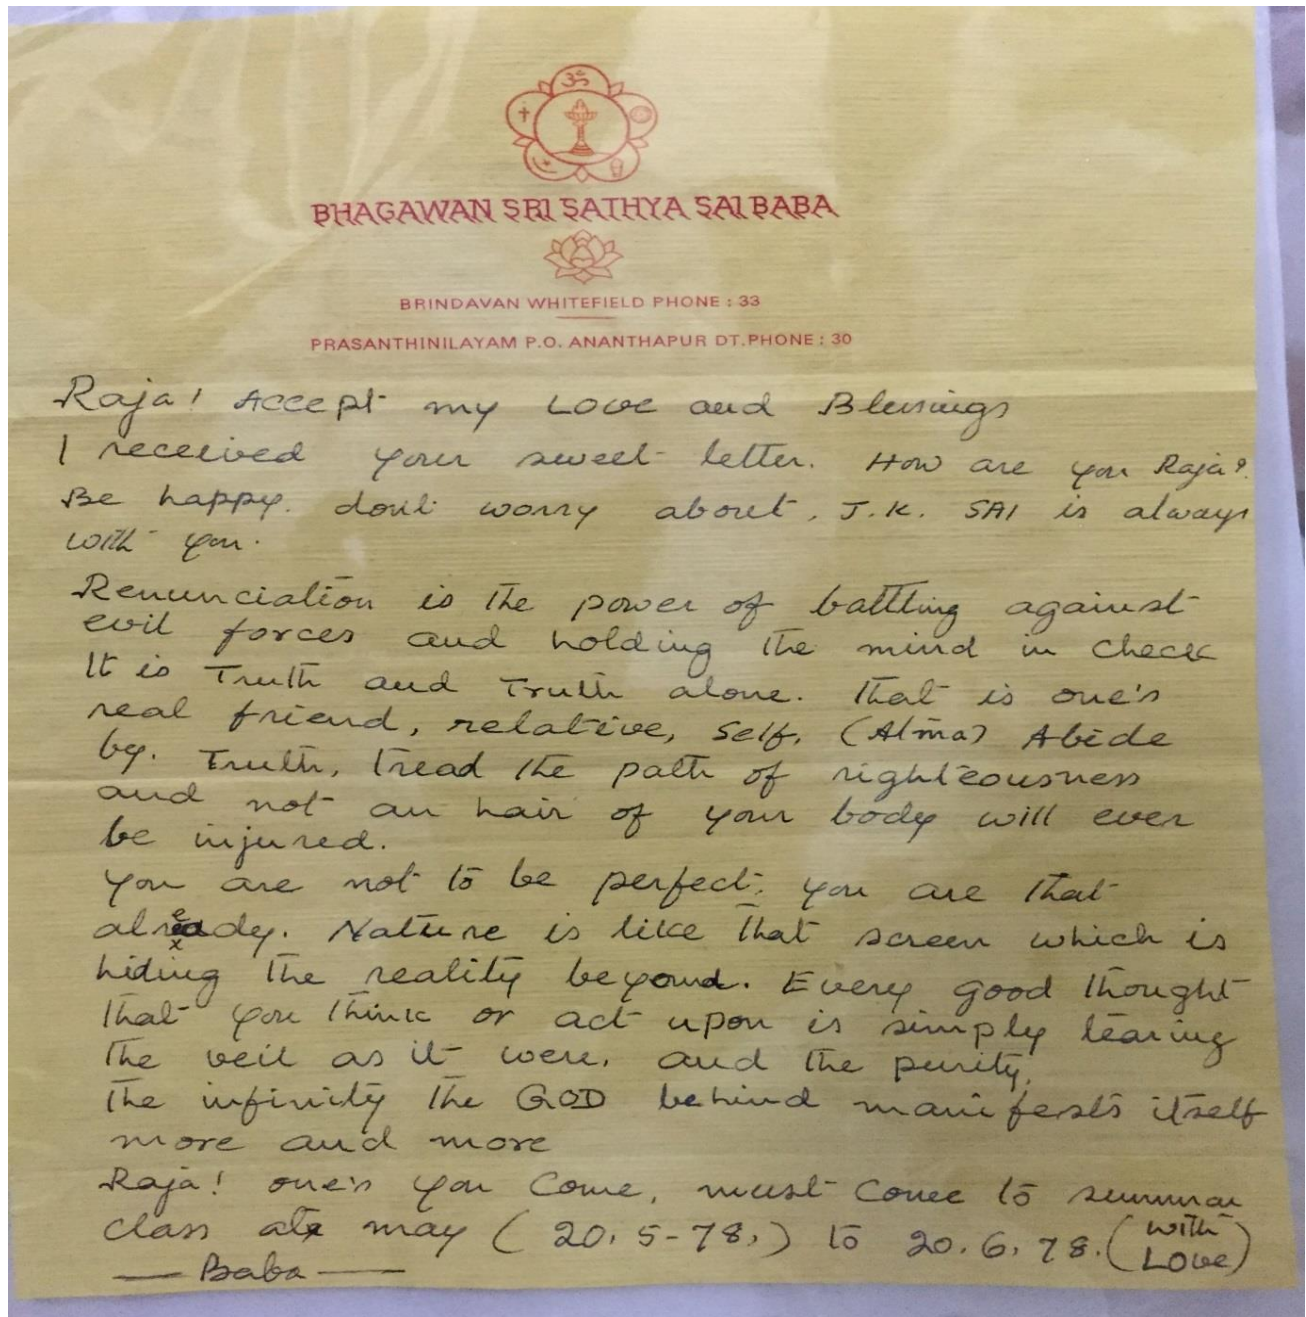 ॐ
BHAGAWAN SRI SATHYA SAI BABA
BRINDAVAN WHITEFIELD PHONE : 33
PRASANTHINILAYAM P.O. ANANTHAPUR DT. PHONE : 30
Raja! Accept my Love and Blessings
I received your sweet letter. How are you Raja?
Be happy. don't worry about, J.K. SAI is always
with you.
Renunciation is the power of battling against
evil forces and holding the mind in check
It is Truth and Truth alone. that is one's
real friend, relative, Self, (Atma) Abide
by. Truth, tread the path of righteousness
and not an hair of your body will ever
be injured.
you are not to be perfect, you are that
already. Nature is like that screen which is
hiding the reality beyond. Every good thought
that you think or act upon is simply tearing
the veil as it were, and the purity,
the infinity the GOD behind manifests itself
more and more
Raja! one's you come, must come to summar
class at may (20.5-78.) to 20.6.78. (with
Love)
— Baba —